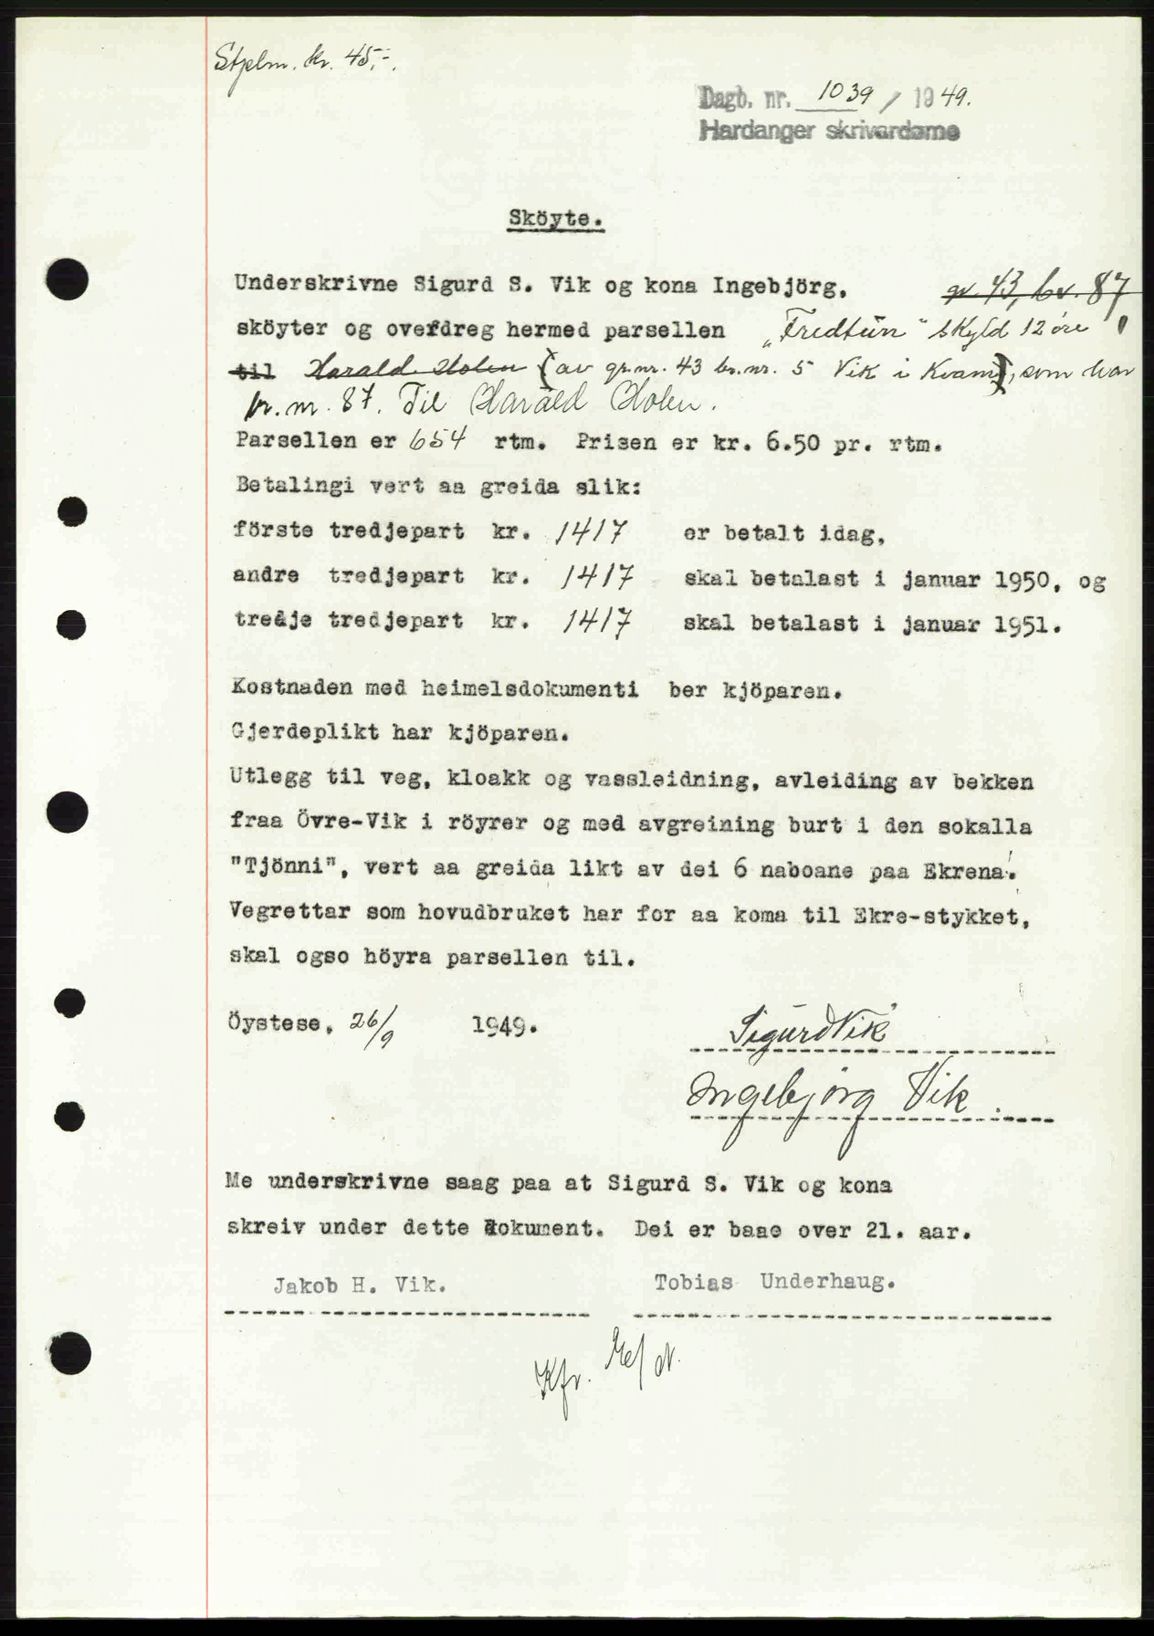 Stplm. kr. 45,-.
Dagb. nr. 1039 / 1949.
Hardanger skrivardøme
Sköyte.
Underskrivne Sigurd S. Vik og kona Ingebjörg, gr. 43, br. 87
sköyter og overdreg hermed parsellen „Fredtun" skyld 12 øre
til Harald Holen (av gr.nr. 43 br.nr. 5 Vik i Kvam), som har
br. nr. 87. Til Harald Holen.
Parsellen er 654 rtm. Prisen er kr. 6.50 pr. rtm.
Betalingi vert aa greida slik:
förste tredjepart kr. 1417 er betalt idag,
andre tredjepart kr. 1417 skal betalast i januar 1950, og
tredje tredjepart kr. 1417 skal betalast i januar 1951.
Kostnaden med heimelsdokumenti ber kjöparen.
Gjerdeplikt har kjöparen.
Utlegg til veg, kloakk og vassleidning, avleiding av bekken
fraa Övre-Vik i röyrer og med avgreining burt i den sokalla
"Tjönni", vert aa greida likt av dei 6 naboane paa Ekrena.
Vegrettar som hovudbruket har for aa koma til Ekre-stykket,
skal ogso höyra parsellen til.
Öystese, 26/9 1949.
Sigurd Vik
Ingebjörg Vik.
Me underskrivne saag paa at Sigurd S. Vik og kona
skreiv under dette dokument. Dei er baae over 21. aar.
Jakob H. Vik. Tobias Underhaug.
Kfr.